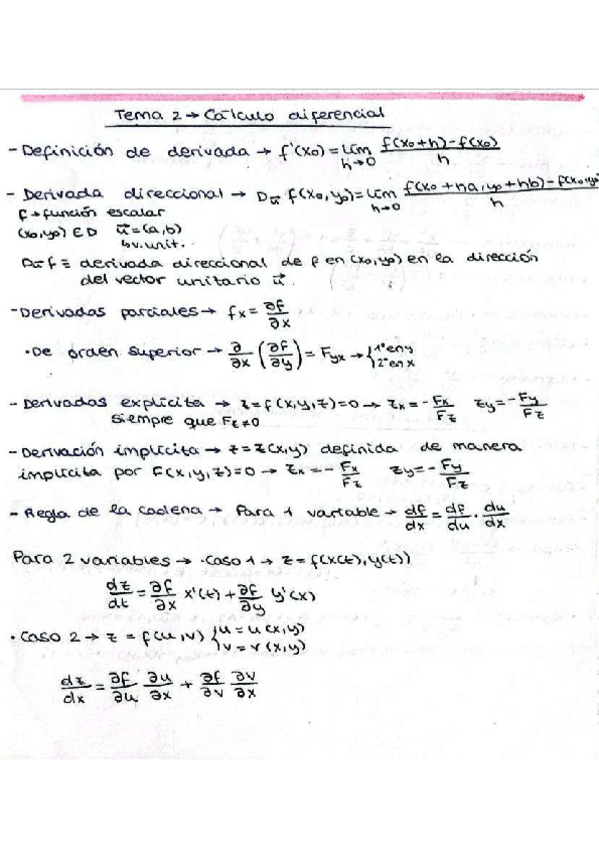 Tema 2 → Cálculo diferencial
- Definición de derivada → f'(x0) = lím h→0 f(x0+h)-f(x0) / h
- Derivada direccional → Du⃗ f(x0,y0) = lím h→0 f(x0+ha, y0+hb) - f(x0,y0) / h
f → función escalar
(x0,y0) ∈ D u⃗ = (a,b)
↳ v. unit.
Du⃗ f ≡ derivada direccional de f en (x0,y0) en la dirección
del vector unitario u⃗.
- Derivadas parciales → fx = ∂f/∂x
• De orden superior → ∂/∂x (∂f/∂y) = Fyx → { 1º en y
2º en x
- Derivadas explícita → z = f(x,y,z) = 0 → zx = - Fx/Fz zy = - Fy/Fz
siempre que Fz ≠ 0
- Derivación implícita → z = z(x,y) definida de manera
implícita por F(x,y,z) = 0 → zx = - Fx/Fz zy = - Fy/Fz
- Regla de la cadena → Para 1 variable → df/dx = df/du · du/dx
Para 2 variables → · Caso 1 → z = f(x(t), y(t))
dz/dt = ∂f/∂x x'(t) + ∂f/∂y y'(x)
• Caso 2 → z = f(u,v) { u = u(x,y)
v = v(x,y)
dz/dx = ∂f/∂u ∂u/∂x + ∂f/∂v ∂v/∂x